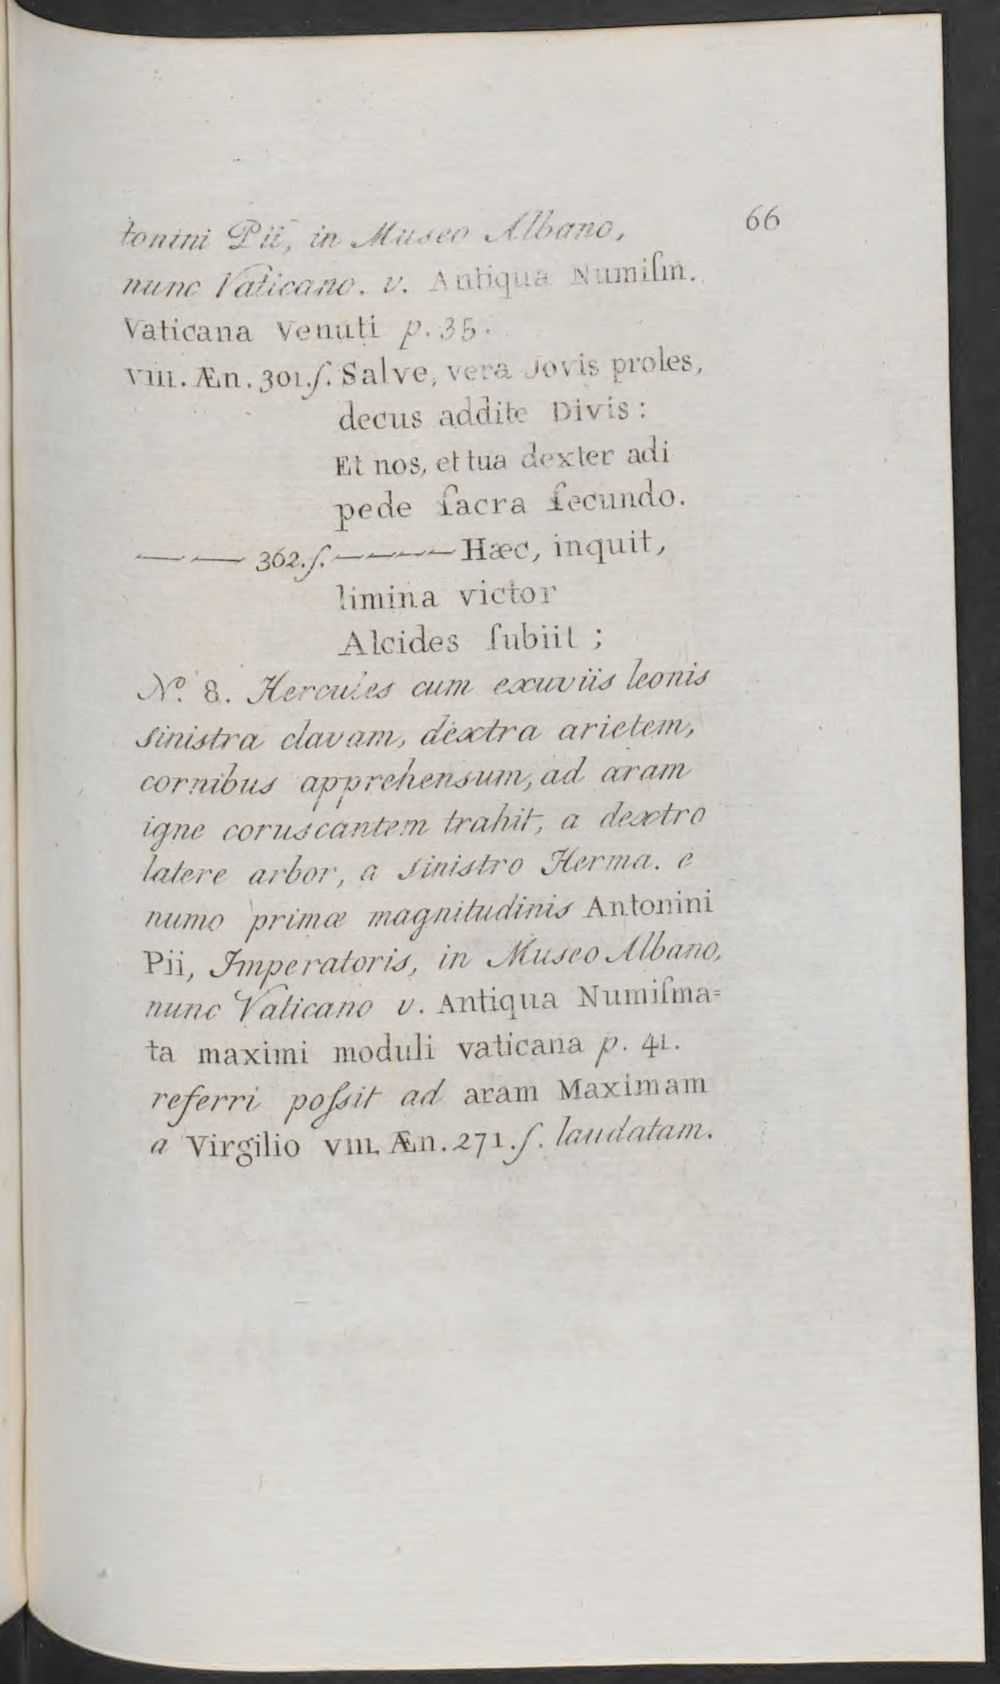 66
tonini Pii, in Museo Albano,
nunc Vaticano. v. Antiqua Numiſm.
Vaticana Venuti p. 35.
VIII. Æn. 301.ſ. Salve, vera Jovis proles,
decus addite Divis:
Et nos, et tua dexter adi
pede ſacra ſecundo.
— — 362.ſ. — — — — Hæc, inquit,
limina victor
Alcides ſubiit ;
N.º 8. Hercules cum exuviis leonis
sinistra clavam, dextra arietem,
cornibus apprehensum, ad aram
igne coruscantem trahit, a dextro
latere arbor, a sinistro Herma. e
numo primæ magnitudinis Antonini
Pii, Imperatoris, in Museo Albano,
nunc Vaticano v. Antiqua Numiſma=
ta maximi moduli vaticana p. 41.
referri poſsit ad aram Maximam
a Virgilio VIII. Æn. 271.ſ. laudatam.